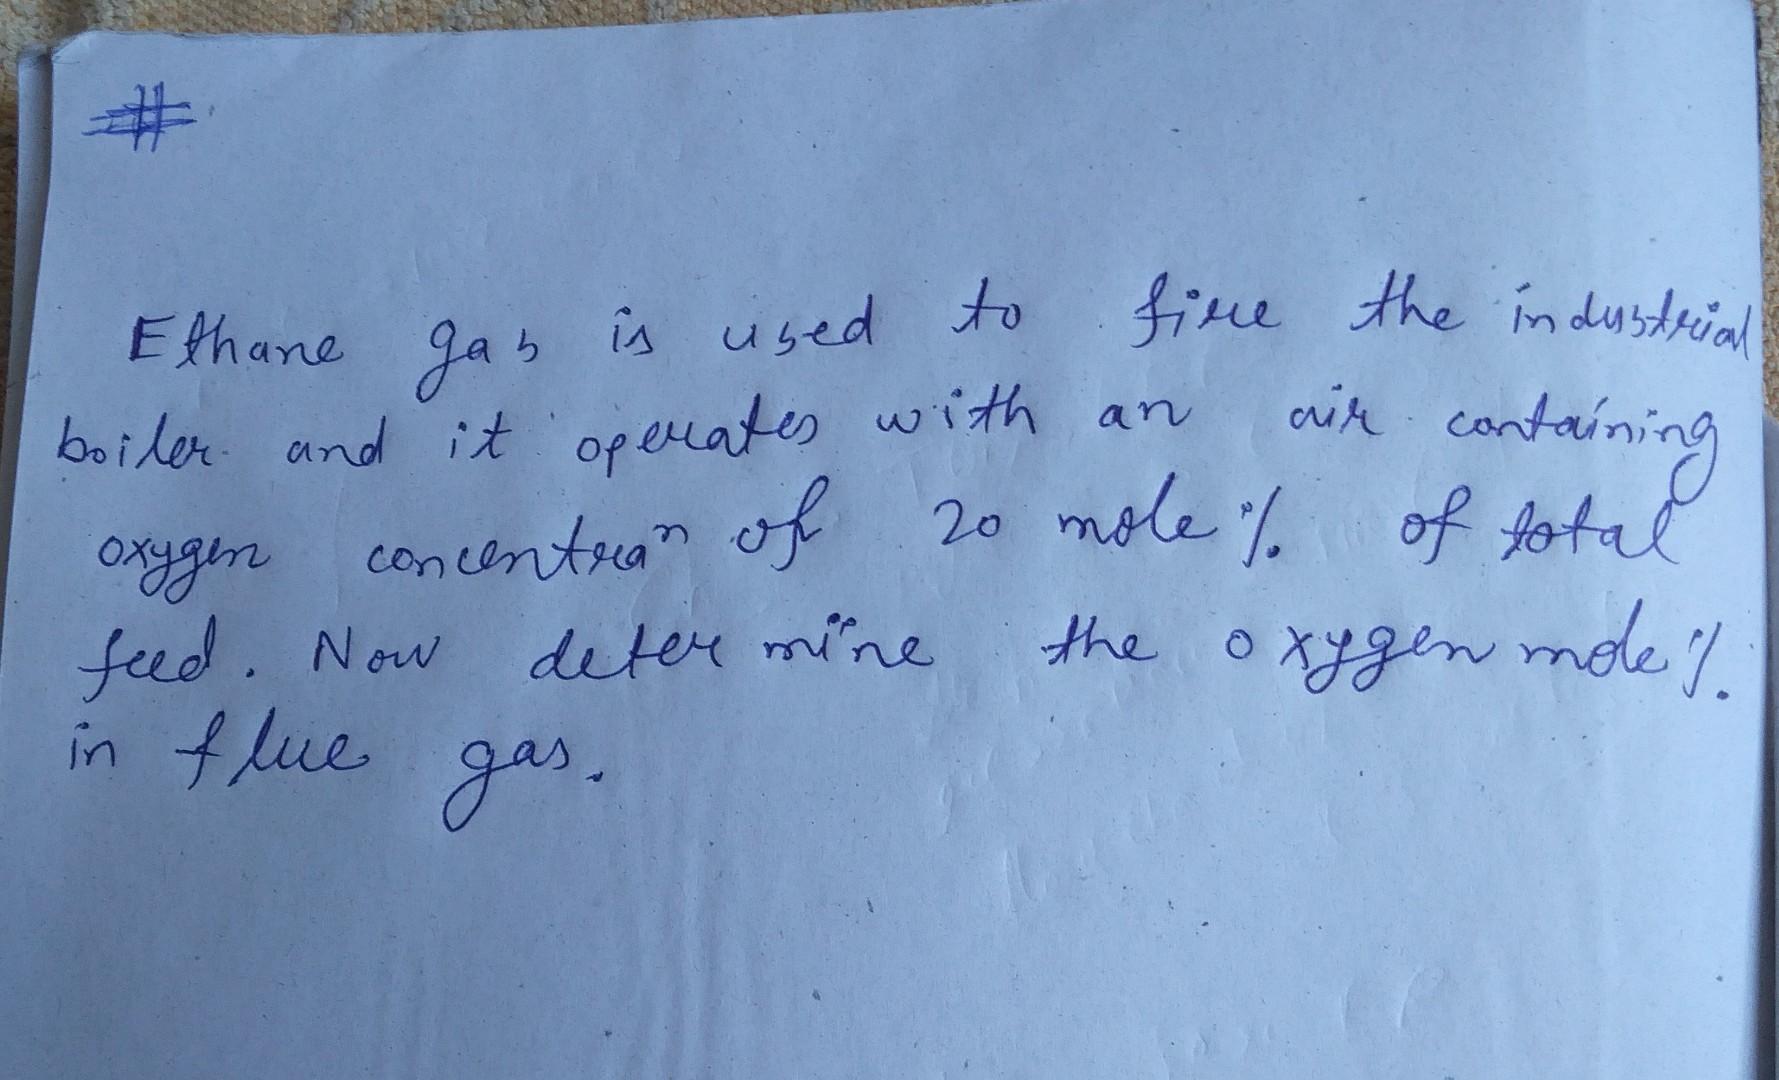 #
Ethane gas is used to fire the industrial
boiler and it operates with an air containing
oxygen concentraⁿ of 20 mole % of total
feed. Now determine the oxygen mole %
in flue gas.